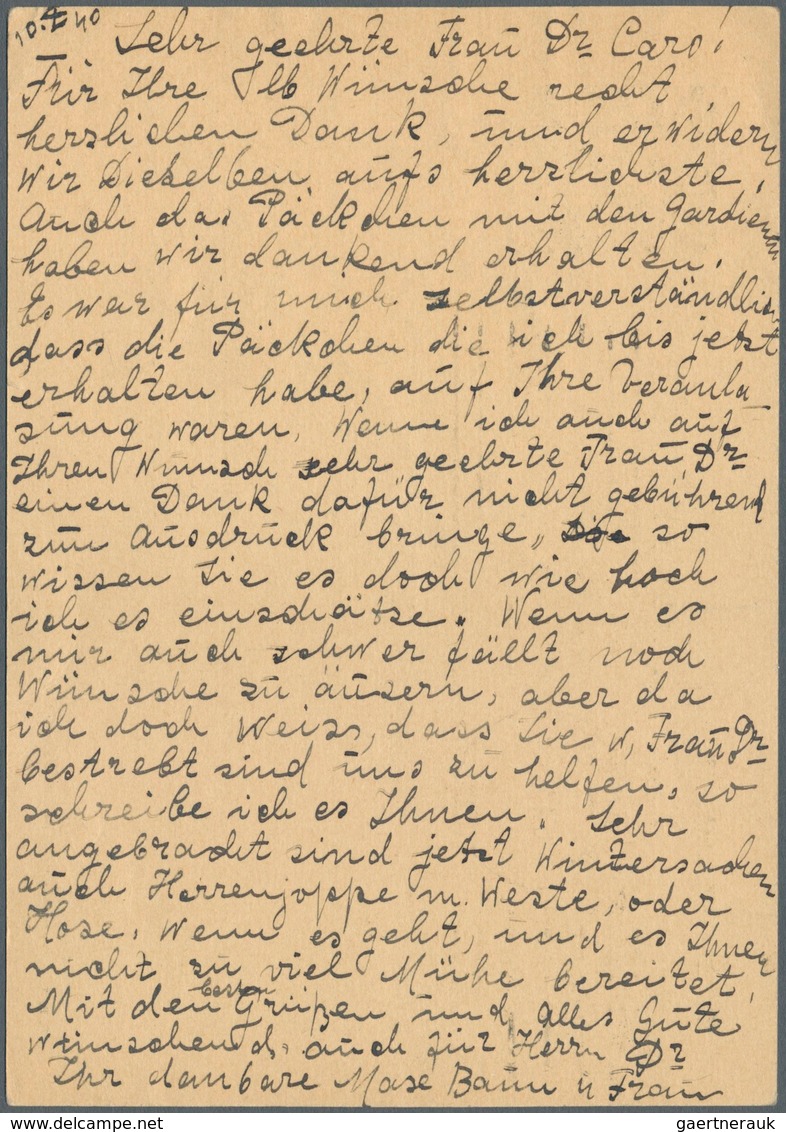 10. X 40
Sehr geehrte Frau Dr Caro!
Für Ihre lb Wünsche recht
herzlichen Dank, und erwidern
wir Dieselben aufs herzlichste,
Auch das Päckchen mit den Gardienen
haben wir dankend erhalten.
Es war für mich selbstverständlich
dass die Päckchen die ich bis jetzt
erhalten habe, auf Ihre Veranla
sung waren, Wenn ich auch auf
Ihren Wunsch sehr geehrte Frau Dr
einen Dank dafür nicht gebührend
zum Ausdruck bringe, so
wissen Sie es doch wie hoch
ich es einschätse. Wenn es
mir auch schwer fällt noch
Wünsche zu äusern, aber da
ich doch Weiss, dass Sie w, Frau Dr
bestrebt sind uns zu helfen, so
schreibe ich es Ihnen. Sehr
angebracht sind jetzt Wintersachen
auch Herrenjoppe m. Weste, oder
Hose, Wenn es geht, und es Ihnen
nicht zu viel Mühe bereitet,
Mit den besten Grüßen und alles Gute
wünschend, auch für Herrn Dr
Ihr dankbare Mose Baum u Frau
gaertnerauk